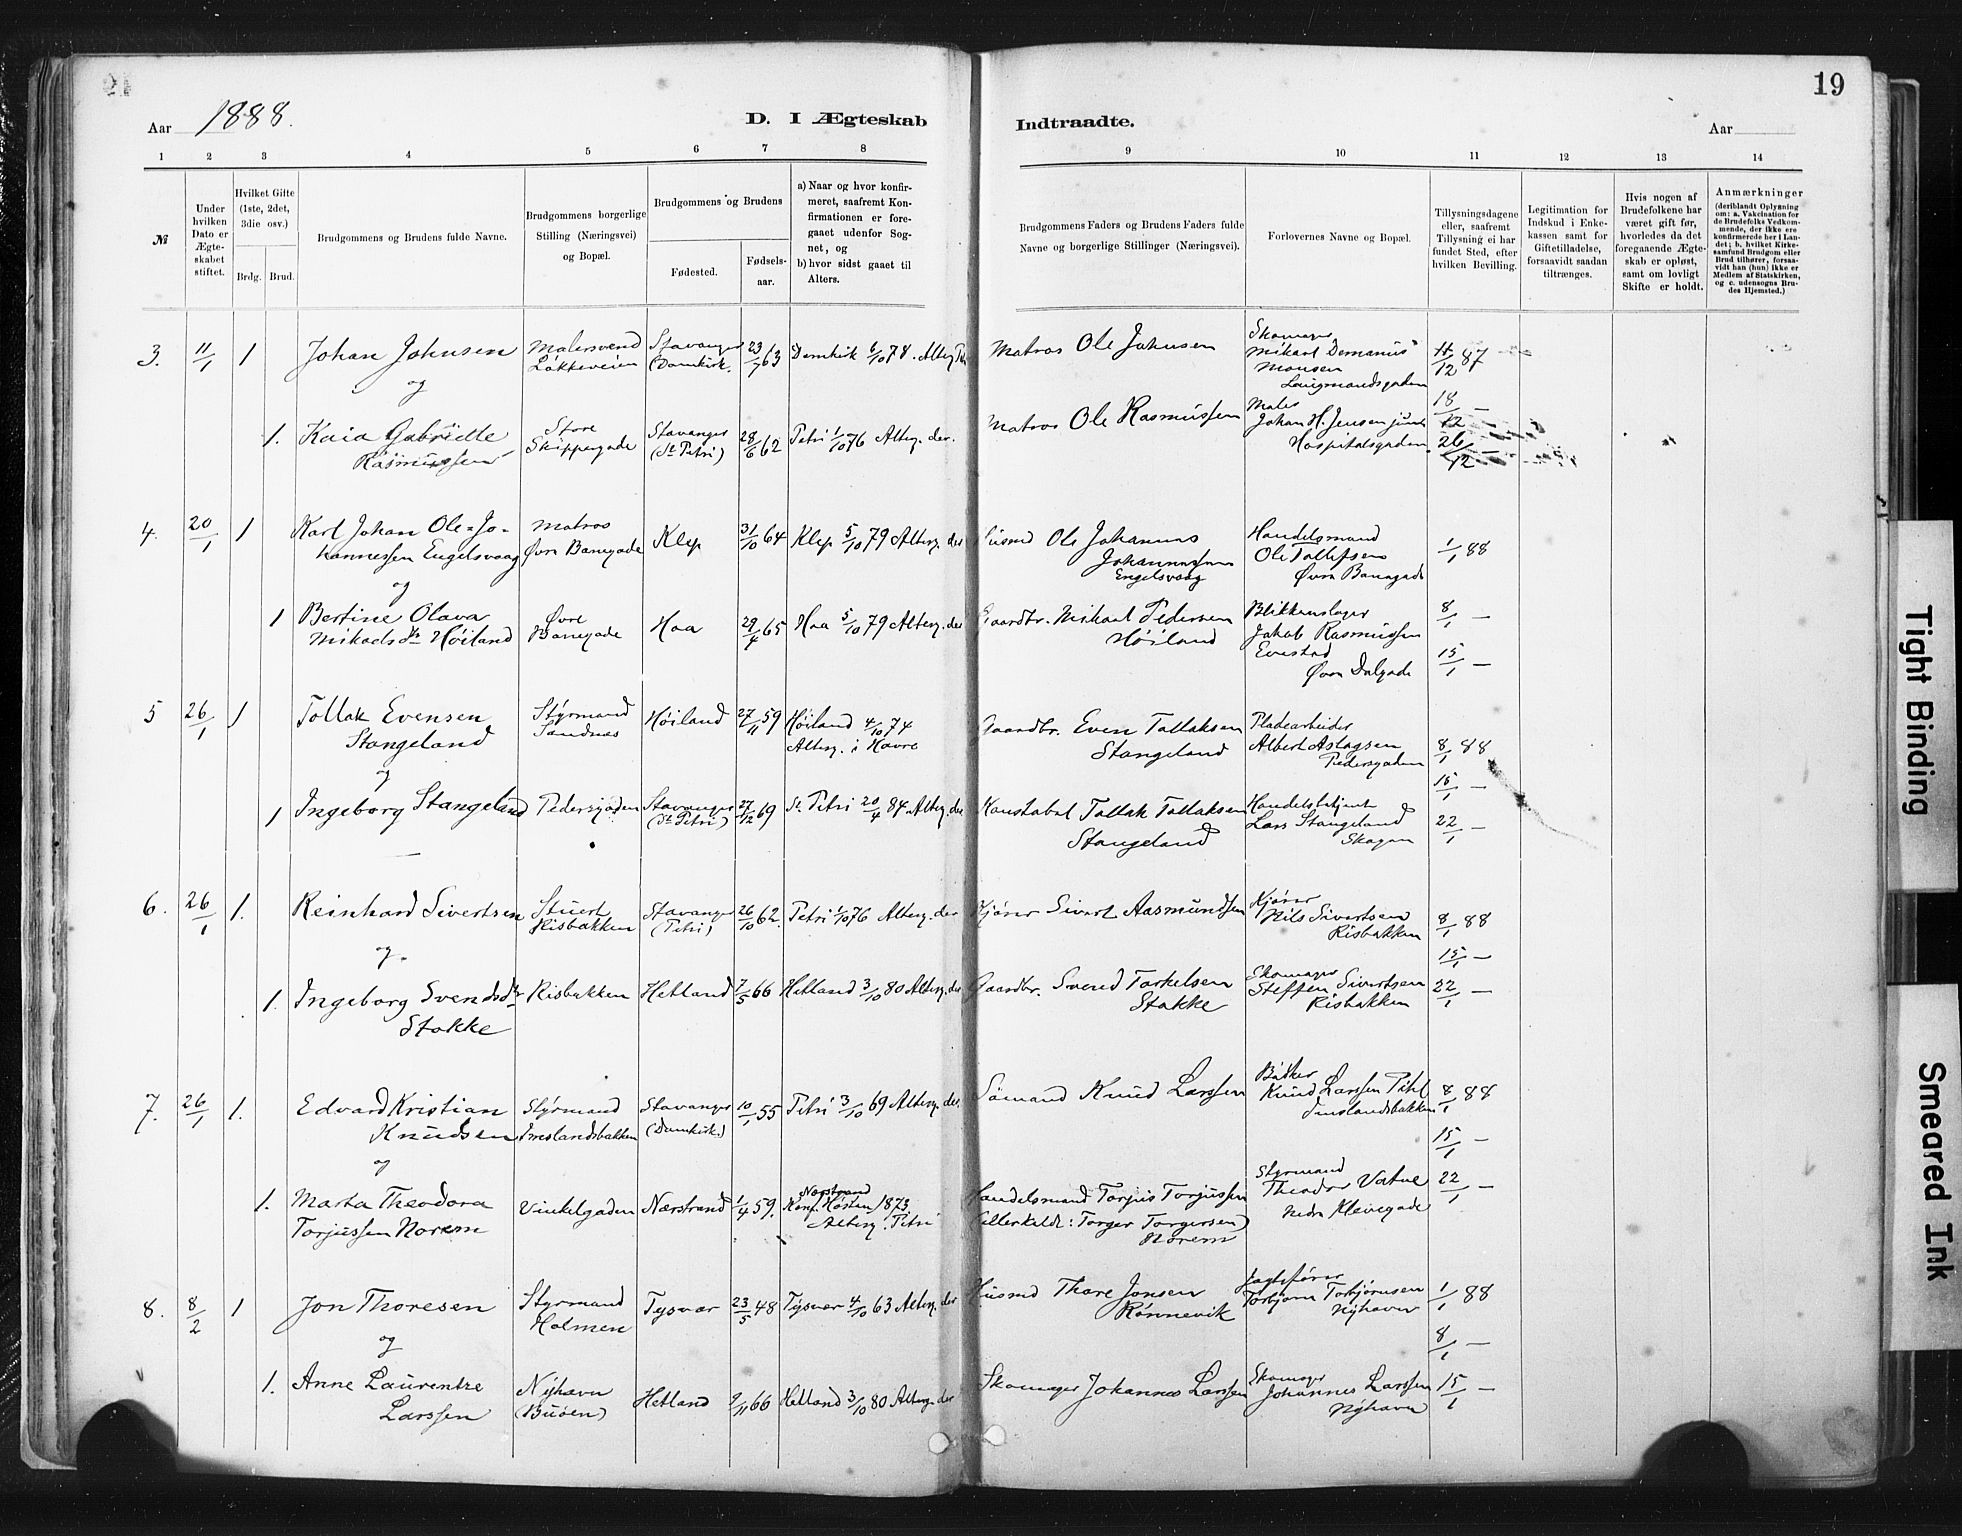 19
Aar 1888.
D. I Ægteskab
Indtraadte.
Aar
1 2 3 4 5 6 7 8
9 10 11 12 13 14
№
Under hvilken Dato er Ægteskabet stiftet.
Hvilket Gifte (1ste, 2det, 3die osv.)
Brdg. Brud.
Brudgommens og Brudens fulde Navne.
Brudgommens borgerlige Stilling (Næringsvei) og Bopæl.
Brudgommens og Brudens
Fødested.
Fødsels-aar.
a) Naar og hvor konfirmeret, saafremt Konfirmationen er foregaaet udenfor Sognet, og
b) hvor sidst gaaet til Alters.
Brudgommens Faders og Brudens Faders fulde Navne og borgerlige Stillinger (Næringsvei).
Forlovernes Navne og Bopæl.
Tillysningsdagene eller, saafremt Tillysning ei har fundet Sted, efter hvilken Bevilling.
Legitimation for Indskud i Enkekassen samt for Giftetilladelse, forsaavidt saadan tiltrænges.
Hvis nogen af Brudefolkene har været gift før, hvorledes da det foregaaende Ægteskab er opløst, samt om lovligt Skifte er holdt.
Anmærkninger (deriblandt Oplysning om: a. Vakcination for de Brudefolks Vedkommende, der ikke ere konfirmerede her i Landet; b. hvilket Kirkesamfund Brudgom eller Brud tilhører, forsaavidt han (hun) ikke er Medlem af Statskirken, og c. udensogns Brudes Hjemsted.)
3. 11/1 1 Johan Johnsen Malersvend Løkkeveien Stavanger (Domkirk. 23/7 63 Domkirk 6/10 78. Alterg. Matros Ole Johnsen Skomager Mikael Monsen Laugmandsgaden 11/12 87
og
1. Kaia Gabrielle Rasmussen Store Skippergade Stavanger (St. Petri) 28/6 62 Petri 1/10 76 Alterg. der. Matros Ole Rasmussen Maler Johan H. Jensen jun. Hospitalsgaden 18/12 — 26/12 —
4. 20/1 1 Karl Johan Ole Johannessen Engelsvaag Matros Øvre Banegade Klep 31/10 64 Klep 5/10 79 Alterg. der Husmd Ole Johannes Johannessen Engelsvaag Handelsmand Ole Tollefsen Øvre Banegade 1/1 88
og
1 Bertine Olava Mikaelsdtr Høiland Øvre Banegade Haa 29/4 65 Haa 5/10 79 Alterg. der Gaardbr. Mikael Pedersen Høiland Blikkenslager Jakob Rasmussen Evestad Øvre Dalgade 8/1 — 15/1 —
5 26/1 1 Tollak Evensen Stangeland Styrmand Sandnes Høiland 27/11 59 Høiland 4/10 74 Alterg. i Havre Gaardbr. Even Tollaksen Stangeland Pladearbeider Albert Aslagsen Pedersgaden 8/1 88
og
1 Ingeborg Stangeland Pedersgaden Stavanger (St. Petri) 27/12 69 St. Petri 20/4 84 Alterg. der Konstabel Tollak Tollaksen Stangeland Handelsbetjent Lars Stangeland Skagen 15/1 — 22/1 —
6. 26/1 1. Reinhard Sivertsen Stuert Risbakken Stavanger (Petri) 26/10 62. Petri 1/10 76 Alterg. der Kjører Sivert Aasmundsen Kjører Nils Sivertsen Risbakken 8/1 88
og.
1. Ingeborg Svendsdtr Stokke Risbakken Hetland 7/5 66 Hetland 3/10 80 Alterg. der Gaardbr. Svend Torkelsen Stokke Skomager Steffen Sivertsen Risbakken 15/1 — 22/1 —
7. 26/1 1. Edvard Kristian Knudsen Styrmand Imslandsbakken Stavanger (Domkirk.) 10/1 55 Petri 3/10 69 Alterg. der. Sømand Knud Larssen Bødker Knud Larssen Pihl Imslandsbakken 8/1 88
og
1. Marta Theodora Torjussen Norem Vinkelgaden Nærstrand 1/4 59. Nærstrand Konf. Høsten 1873. Alterg. Petri Handelsmand Torjus Torjussen (ellerkaldt: Torger Torgersen) Norem Styrmand Theodor Vatne Nedre Klevegade 15/1 — 22/1 —
8. 8/2 1 Jon Thoresen Styrmand Holmen Tysvær 23/5 48 Tysvær 4/10 63 Alterg. der Husmd Thore Jonsen Rønnevik Jagtefører Torbjørn Torbjørnsen Nyhavn 1/1 88
og
1. Anne Laurentze Larssen Nyhavn (Buøen) Hetland 9/11 66 Hetland 3/10 80 Alterg. der Skomager Johannes Larssen Skomager Johannes Larssen Nyhavn 8/1 — 15/1 —
Tight Binding
Smeared Ink